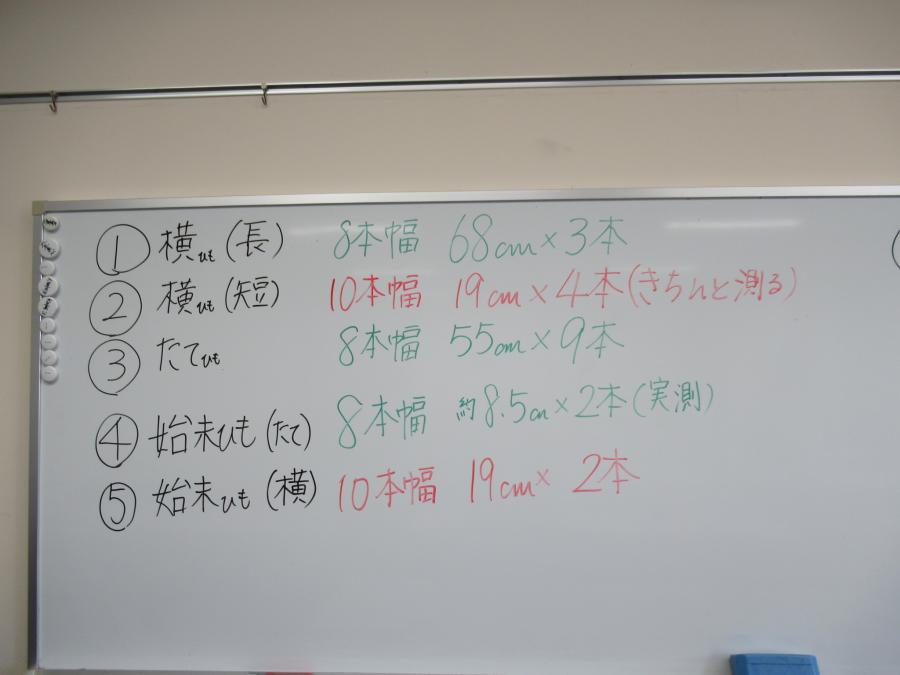 ① 横ひも (長) 8本幅 68cm×3本
② 横ひも (短) 10本幅 19cm×4本(きちんと測る)
③ たてひも 8本幅 55cm×9本
④ 始末ひも (たて) 8本幅 約8.5cm×2本(実測)
⑤ 始末ひも (横) 10本幅 19cm× 2本